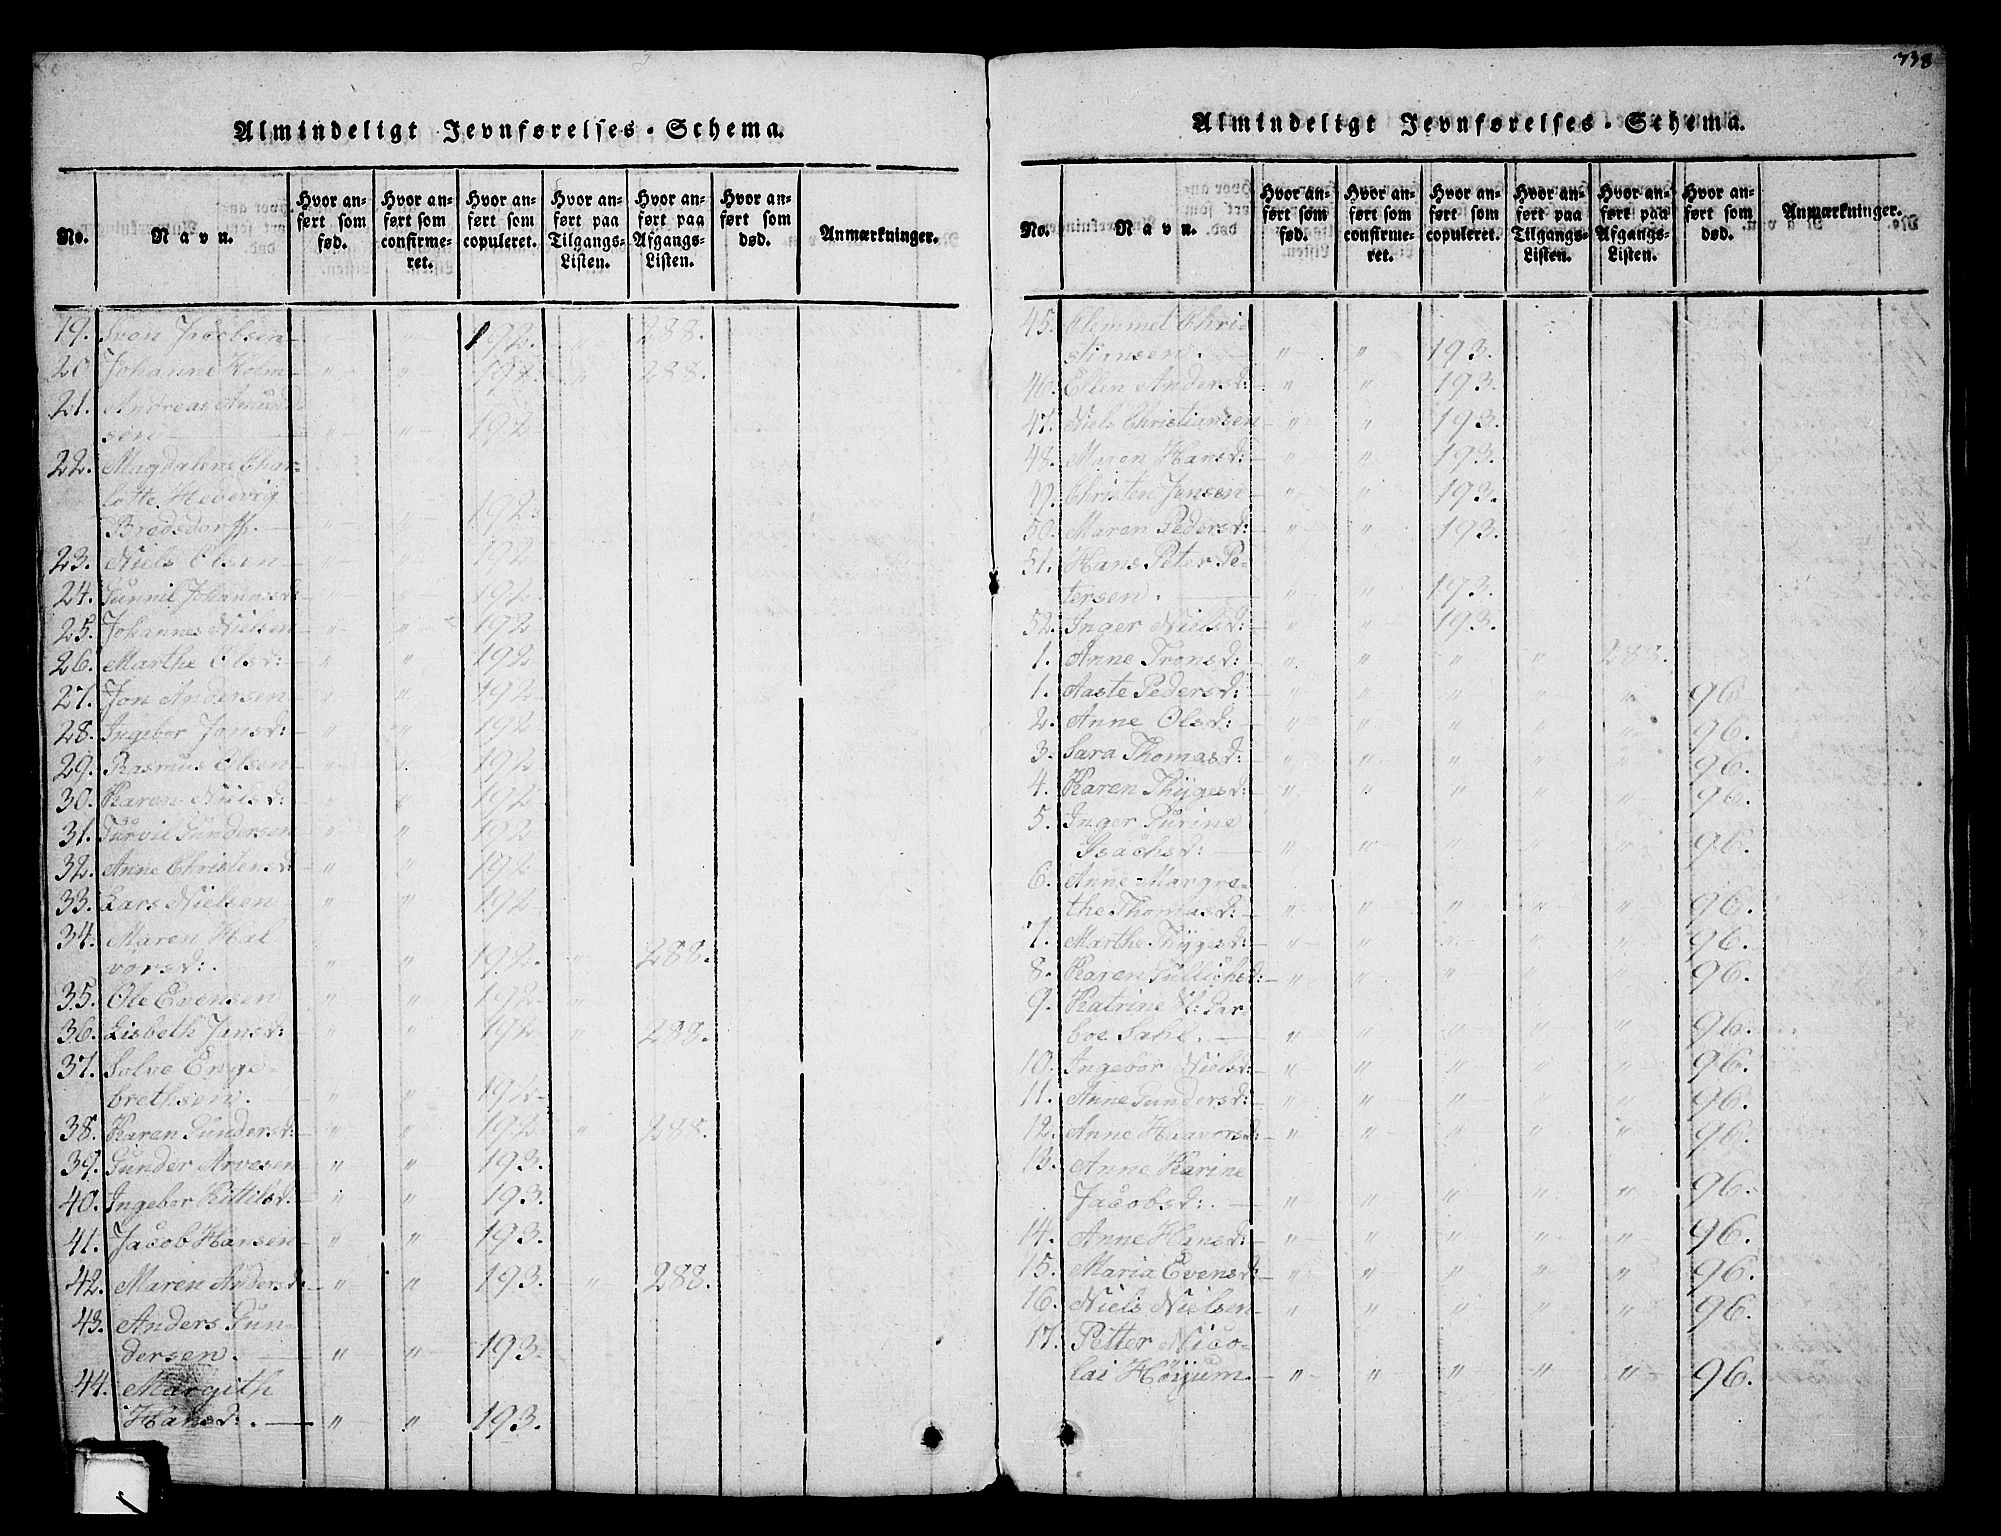 338
Almindeligt Jevnførelses-Schema.
No. Navn. Hvor anført som fød. Hvor anført som confirmeret. Hvor anført som copuleret. Hvor anført paa Tilgangs-Listen. Hvor anført paa Afgangs-Listen. Hvor anført som død. Anmærkninger.
19. Iven Jacobsen — " " 192. " 288.
20 Johanne Holm — " " 192. " 288.
21. Andreas Amund-
sen — " " 192
22. Magdalene Char-
lotte Hedevig
Bredsdorff. — " " 192.
23. Niels Olsen — " " 192
24. Gunnil Johannesd: " " 192.
25. Johannes Nielsen — " " 192
26. Marthe Olsd: — " " 192
27. Jon Andersen " " 192
28. Ingebor Jonsd: — " " 192
29. Rasmus Olsen — " " 192
30. Karen Nielsd: " " 192
31. Torvil Gundersen " " 192
32. Anne Christensd: " " 192
33. Lars Nielsen " " 192
34. Maren Hal
vorsd: . " " 192. " 288.
35. Ole Evensen " " 192 "
36. Lisbeth Jansd: " " 192 " 288.
37. Solve Enge-
brethsen. — " " 192
38. Karen Gundersd: — " " 192 " 288.
39. Gunder Arvesen " " 193.
40. Ingebor Kittilsd: — " " 193.
41. Jacob Hansen — " " 193.
42. Maren Andersd: — " " 193. " 288.
43. Anders Gun-
dersen. — " " 193.
44. Margith
Hansd: . — " " 193.
Almindeligt Jevnførelses-Schema.
No. Navn. Hvor anført som fød. Hvor anført som confirmeret. Hvor anført som copuleret. Hvor anført paa Tilgangs-Listen. Hvor anført paa Afgangs-Listen. Hvor anført som død. Anmærkninger.
45. Clemmet Chri-
stiansen. — " " 193.
46. Ellen Andersd: " " 193.
47. Niels Christiansen — " " 193.
48. Maren Hansd: — " " 193.
49. Christen Jensen — " " 193.
50. Maren Pedersd: — " " 193.
51. Hans Peter Pe-
tersen. — " " 193.
52. Inger Nielsd: — " " 193.
1. Anne Tronsd: — " " " " 288.
1. Aaste Pedersd: — " " " " " 96
2. Anne Olsd: — " " " " " 96.
3. Sara Thomasd: " " " " " 96.
4. Karen Thygesd: " " " " " 96.
5. Inger Gurine
Isachsd: — " " " " " 96.
6. Anne Margre-
the Thomasd: — " " " " " 96.
7. Marthe Thygesd: — " " " " " 96.
8. Karen Gullichsd: " " " " " 96.
9. Katrine N: Par-
boe Sahl. — " " " " " 96.
10. Ingebor Nielsd: — " " " " " 96.
11. Anne Gundersd: — " " " " " 96.
12. Anne Haavorsd: — " " " " " 96.
13. Anne Karine
Jacobsd: . — " " " " " 96.
14. Anne Hansd: — " " " " " 96.
15. Maria Evensd: — " " " " " 96.
16. Niels Nielsen — " " " " " 96.
17. Petter Nico-
lai Höyum. — " " " " " 96.